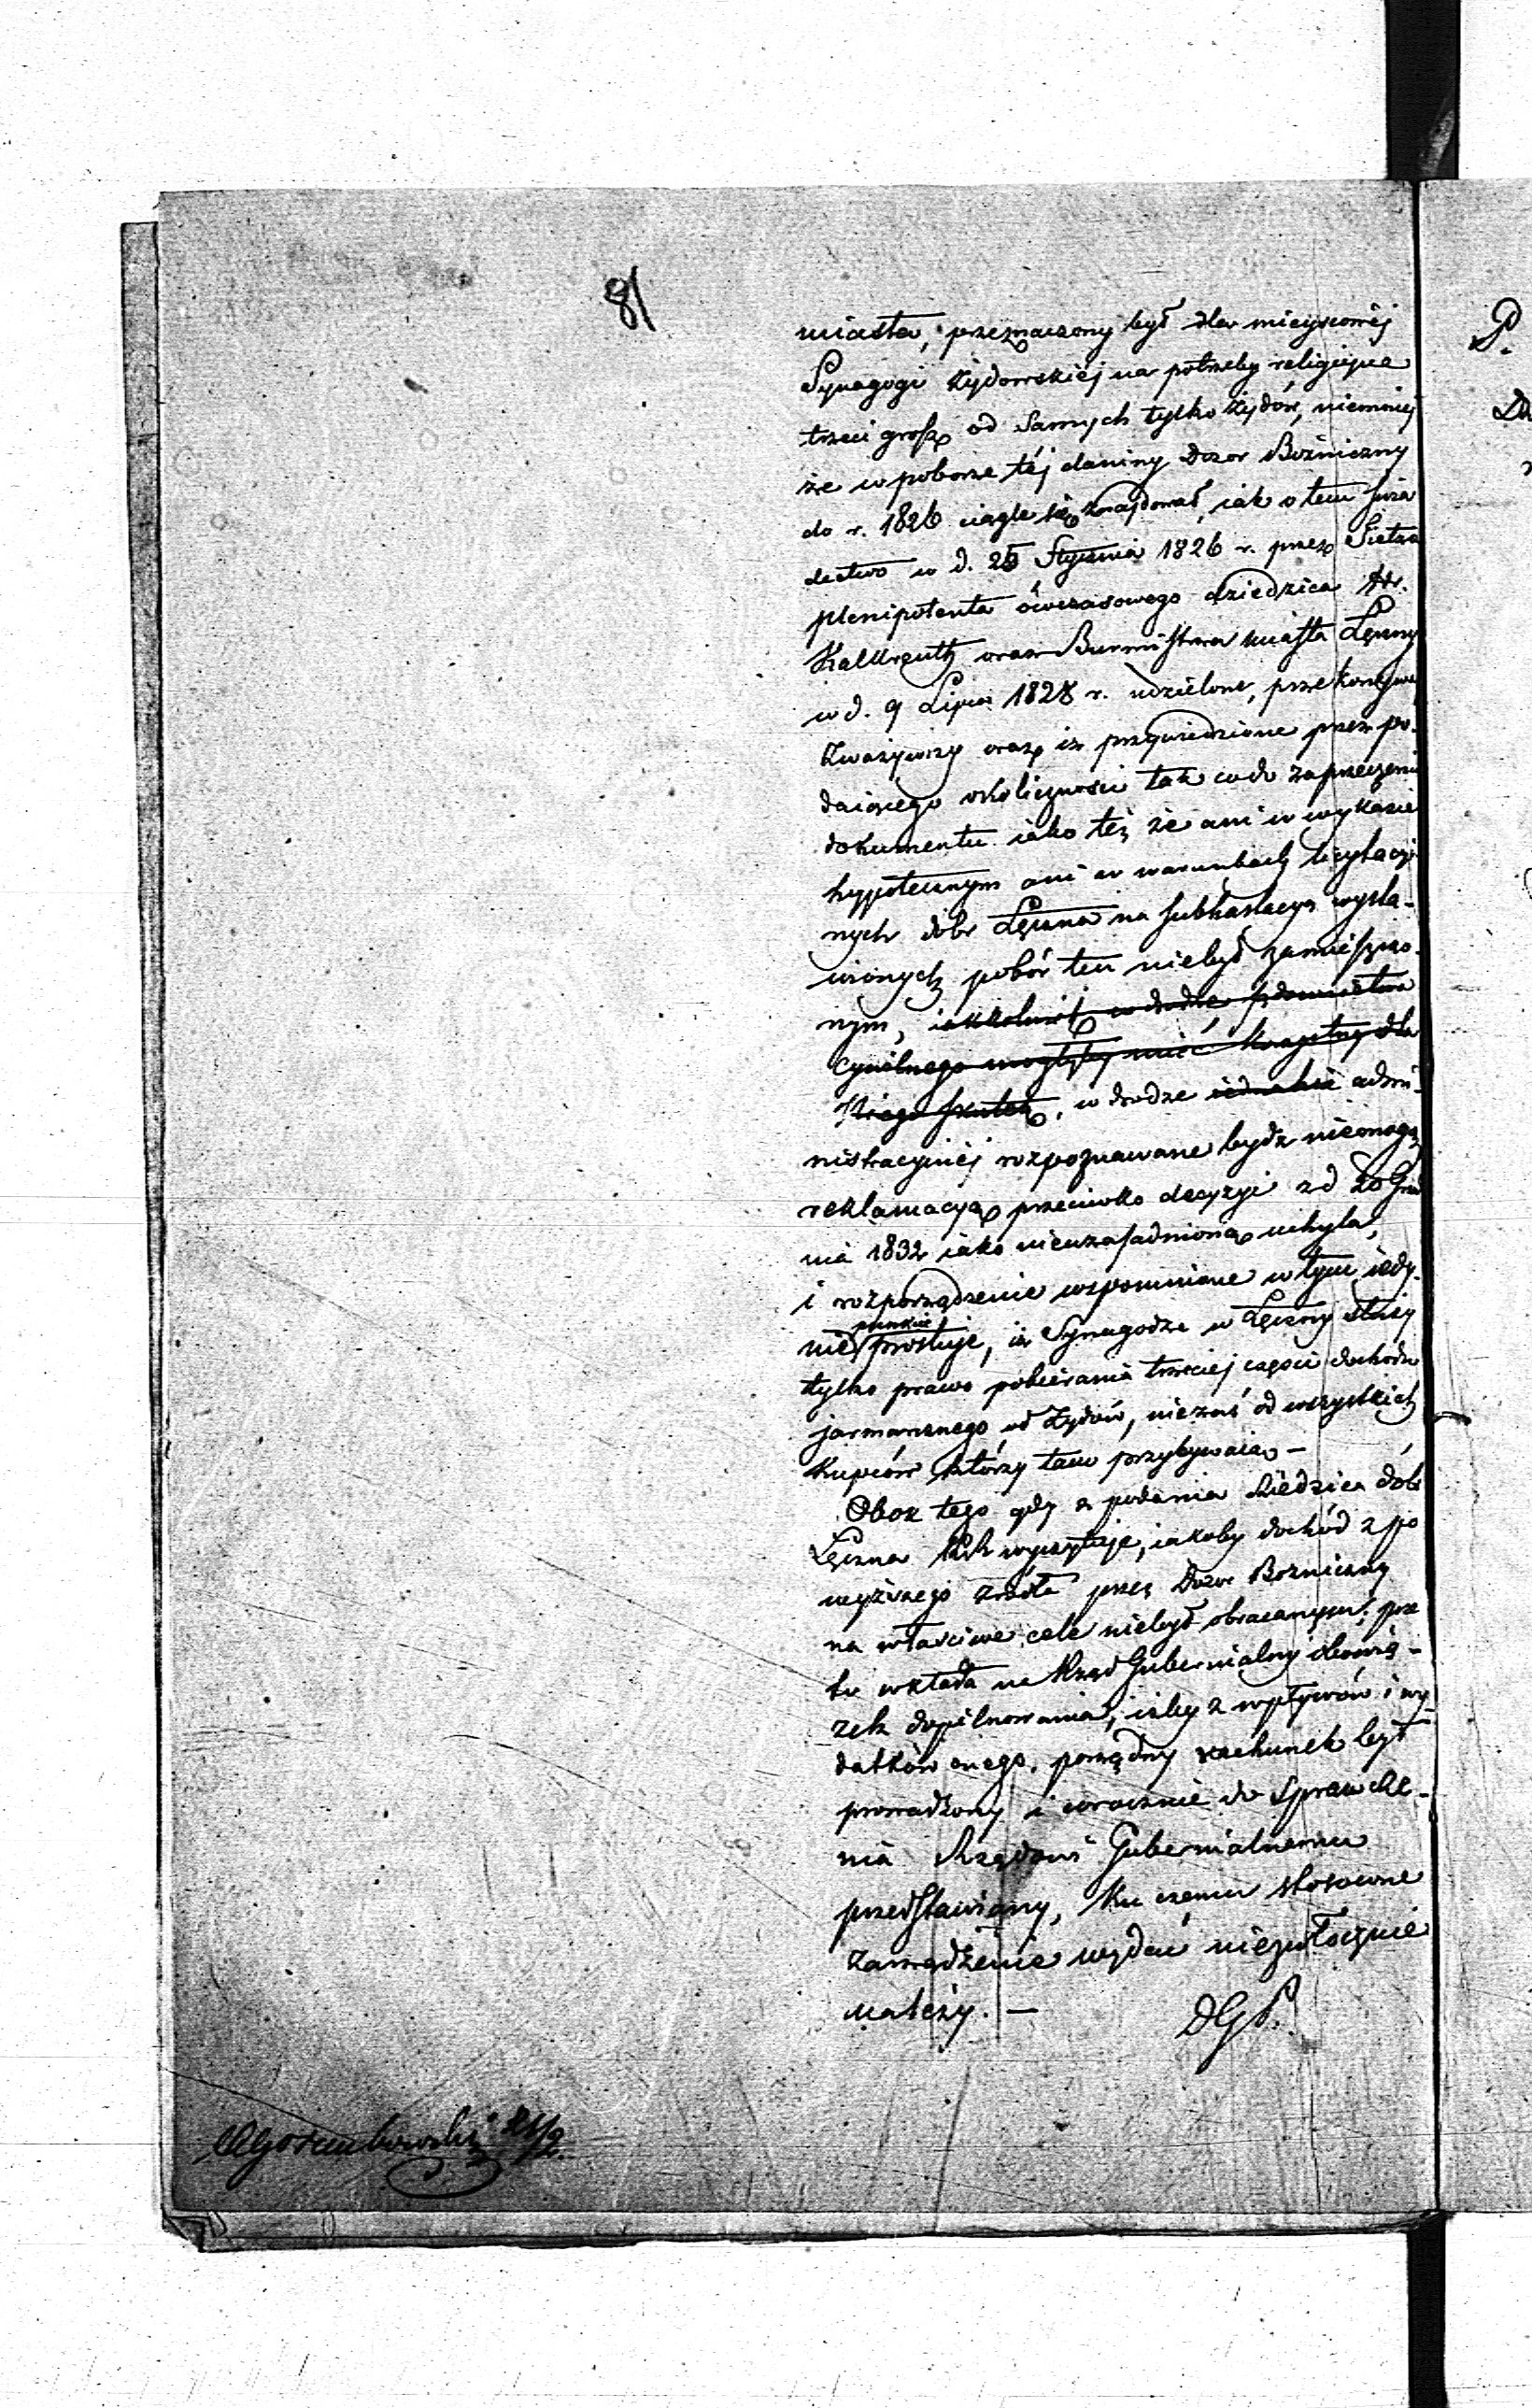 81
miasta, przeznaczony był dla miejscowéj
Synagogi żydowskiéj na potrzeby religijne
trzeci grosz od samych tylko żydów, niemniej
że w poborze téj daniny Dozor Bożniczny
do r. 1826 ciągle się znajdował, iak o tem świa
dectwo w d. 25 Stycznia 1826 r. przez
plenipotenta ówczasowego dziedzica Hr.
Kalkreuth oraz Burmistrza miasta Łęczny
w d. 9 Lipca 1828 r. udzielone, przekonywa
zważywszy oraz iż przywiedzione przez po-
daiącego okoliczności tak co do zaprzeczenia
dokumentu iako też że ani w wykazie
hypotecznym ani w warunkach licytacyj
nych dóbr Łęczna na subhastacyą wysta-
wionych pobór ten niebył zamieszczo-
nym, w drodze
cywilnego mogłyby mieć korzystny dla
niego skutek, w drodze iednakże admi-
nistracyjnéj rozpoznawane bydz niemogą
reklamacyą przeciwko decyzyi z d 20 Grud
nia 1832 iako nieuzasadnioną uchyla,
i rozporządzenie wspomnione w tym iedy-
nie punkcie prostuje, iż Synagodze w Łęczny służy
tylko prawo pobierania trzeciej części dochodu
jarmarcznego od Żydów, niezaś od wszystkich
kupców którzy tam przybywaią –
Obok tego gdy z podania dziedzica dóbr
Łęczna wyczytuje, iakoby dochód z po
wyższego źródła przez Dozor Bożniczny
na właściwe cele niebył obracanym; prze
to wkłada na Rząd Gubernialny obowią-
zek dopilnowania, iżby z wpływów i wy-
datków onego, porządny rachunek był
prowadzony i corocznie do sprawdze-
nia Rządowi Gubernialnemu
przedstawiany, ku czemu stosowne
zarządzenie wydać niezwłocznie
należy. –
DGS.
21/2